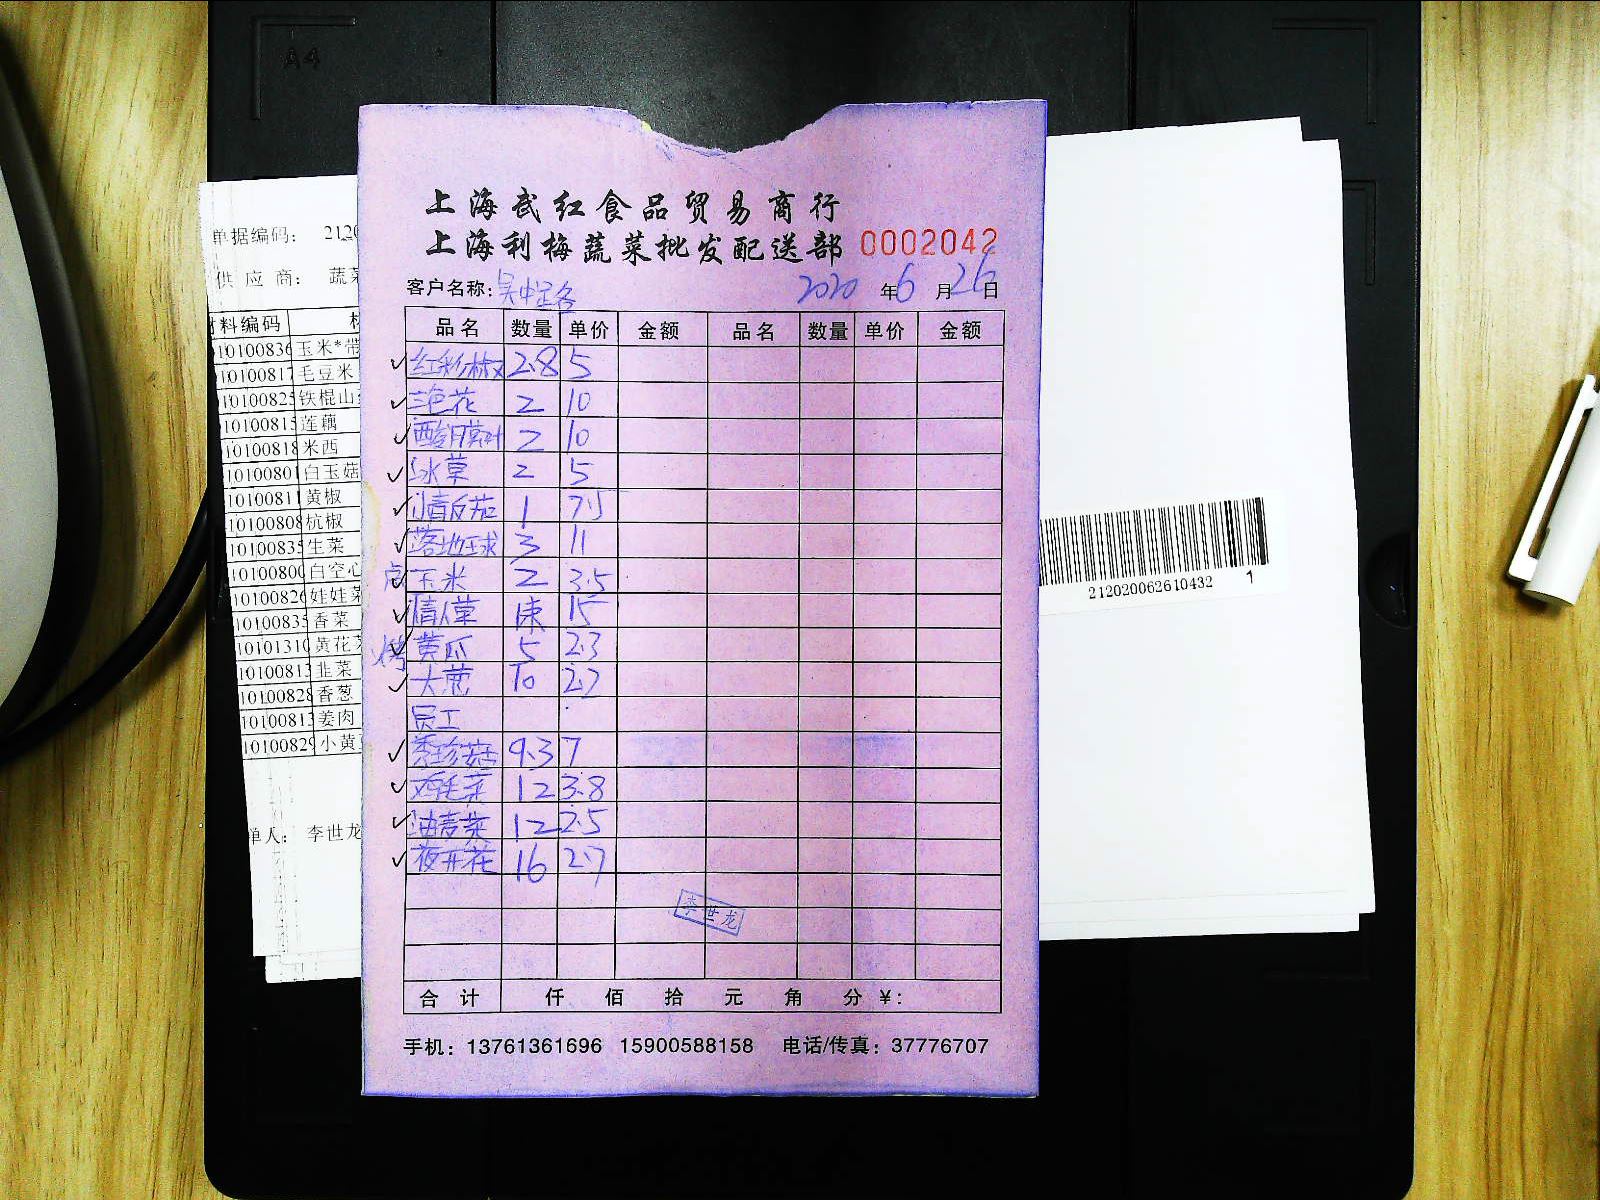 A4
上海武红食品贸易商行
上海利梅蔬菜批发配送部 0002042
客户名称: 吴中 2020 年 6 月 26 日
品名 数量 单价 金额 品名 数量 单价 金额
✓ 红彩椒 2.8 5
✓ 三色花 2 10
✓ 2 10
✓ 冰草 2 5
✓ 1 7.5
✓ 落地球 3 11
点 玉米 2 3.5
✓ 情人草 1束 15
烤 黄瓜 5 2.3
✓ 大葱 10 2.7
员工
✓ 秀珍菇 9.3 7
✓ 鸡毛菜 12 3.8
✓ 油麦菜 12 2.5
✓ 夜开花 16 2.7
李世龙
合计 仟 佰 拾 元 角 分 ¥:
手机: 13761361696 15900588158 电话/传真: 37776707
单据编码: 2120
供应商: 蔬菜
料编码
10100836 玉米*带
10100817 毛豆米
10100825 铁棍山
10100815 莲藕
10100818 米西
10100801 白玉菇
10100811 黄椒
10100808 杭椒
10100835 生菜
10100800 白空心
10100826 娃娃菜
10100835 香菜
10101310 黄花菜
10100813 韭菜
10100828 香葱
10100813 姜肉
10100829 小黄
单人: 李世龙
212020062610432 1